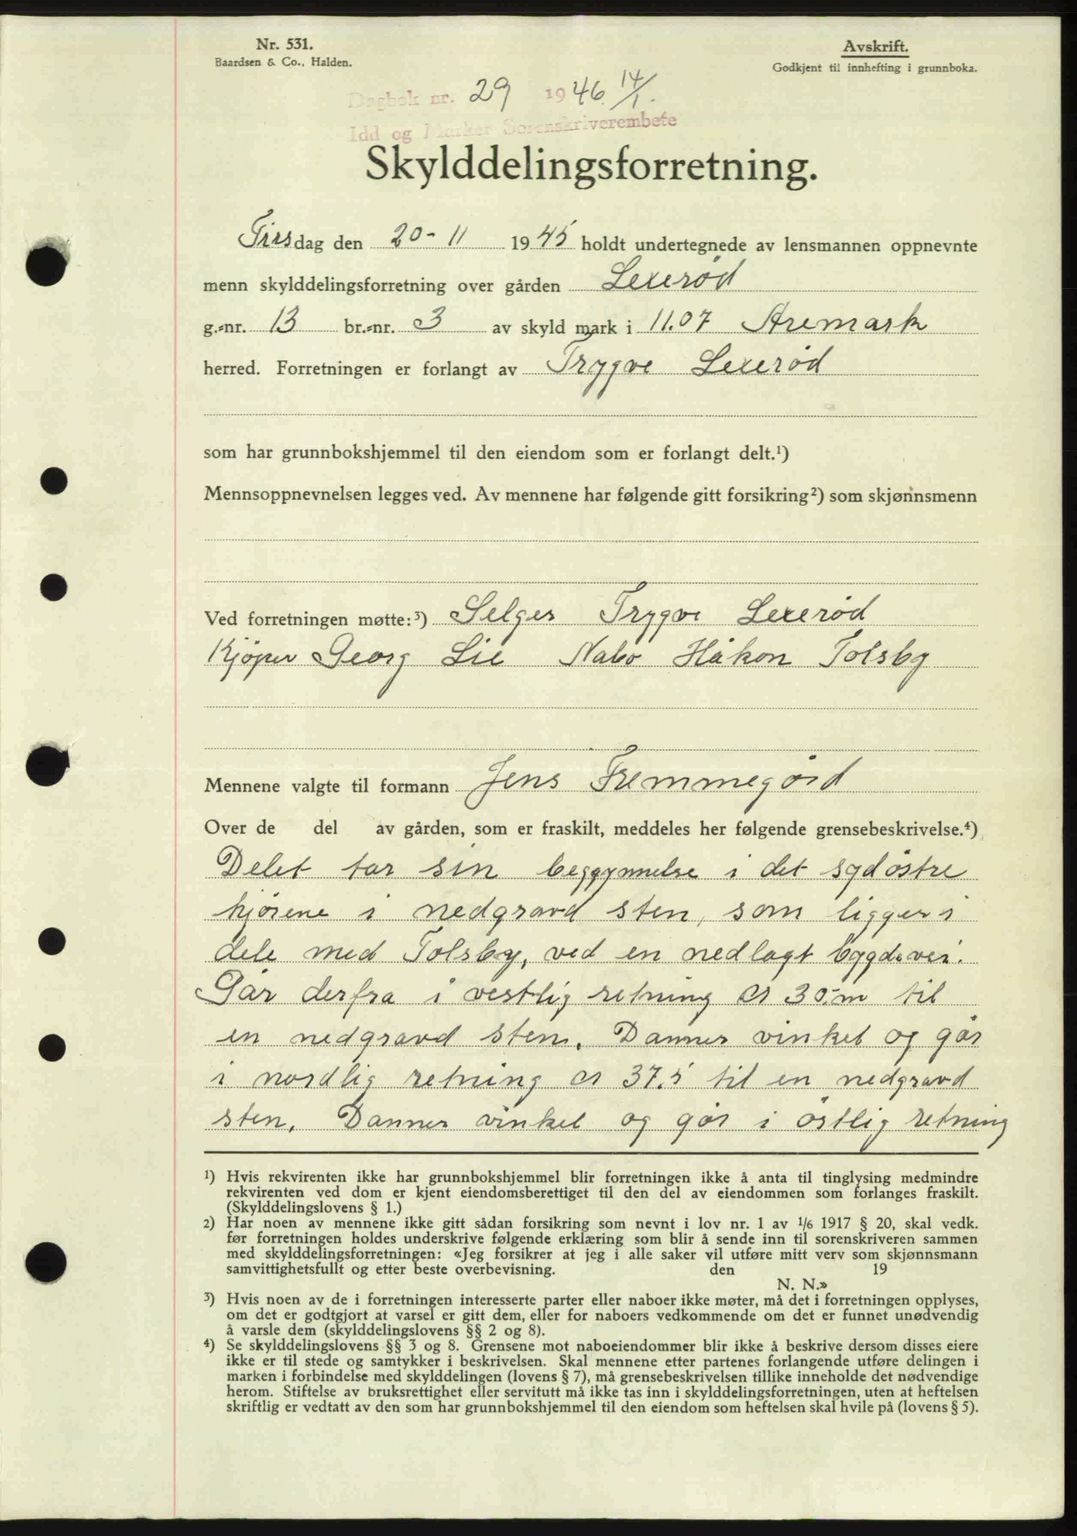 Nr. 531.
Baardsen & Co., Halden.
Avskrift.
Godkjent til innhefting i grunnboka.
Dagbok nr. 29 1946 14/1.
Idd og Marker Sorenskriverembete
Skylddelingsforretning.
Tirsdag den 20-11 1945 holdt undertegnede av lensmannen oppnevnte
menn skylddelingsforretning over gården Lexerød
g.-nr. 13 br.-nr. 3 av skyld mark i 11.07 Aremark
herred. Forretningen er forlangt av Trygve Lexerød
som har grunnbokshjemmel til den eiendom som er forlangt delt.¹)
Mennsoppnevnelsen legges ved. Av mennene har følgende gitt forsikring²) som skjønnsmenn
Ved forretningen møtte:³) Selger Trygve Lexerød
Kjöper Georg Lie Nabo Håkon Tolsby
Mennene valgte til formann Jens Fremmegård
Over de del av gården, som er fraskilt, meddeles her følgende grensebeskrivelse.⁴)
Delet tar sin beggynnelse i det sydöstre
hjörne i nedgravd sten, som ligger i
dele med Tolsby, ved en nedlagt bygdevei.
Går derfra i vestlig retning ca 30.m til
en nedgravd sten. Danner vinkel og går
i nordlig retning ca 37.5 til en nedgravd
sten. Danner vinkel og går i östlig retning
¹) Hvis rekvirenten ikke har grunnbokshjemmel blir forretningen ikke å anta til tinglysing medmindre
rekvirenten ved dom er kjent eiendomsberettiget til den del av eiendommen som forlanges fraskilt.
(Skylddelingslovens § 1.)
²) Har noen av mennene ikke gitt sådan forsikring som nevnt i lov nr. 1 av 1/6 1917 § 20, skal vedk.
før forretningen holdes underskrive følgende erklæring som blir å sende inn til sorenskriveren sammen
med skylddelingsforretningen: «Jeg forsikrer at jeg i alle saker vil utføre mitt verv som skjønnsmann
samvittighetsfullt og etter beste overbevisning. den 19
N. N.»
³) Hvis noen av de i forretningen interesserte parter eller naboer ikke møter, må det i forretningen opplyses,
om det er godtgjort at varsel er gitt dem, eller for naboers vedkommende om det er funnet unødvendig
å varsle dem (skylddelingslovens §§ 2 og 8).
⁴) Se skylddelingslovens §§ 3 og 8. Grensene mot naboeiendommer blir ikke å beskrive dersom disses eiere
ikke er til stede og samtykker i beskrivelsen. Skal mennene etter partenes forlangende utføre delingen i
marken i forbindelse med skylddelingen (lovens § 7), må grensebeskrivelsen tillike inneholde det nødvendige
herom. Stiftelse av bruksrettighet eller servitutt må ikke tas inn i skylddelingsforretningen, uten at heftelsen
skriftlig er vedtatt av den som har grunnbokshjemmel til den eiendom som heftelsen skal hvile på (lovens § 5).